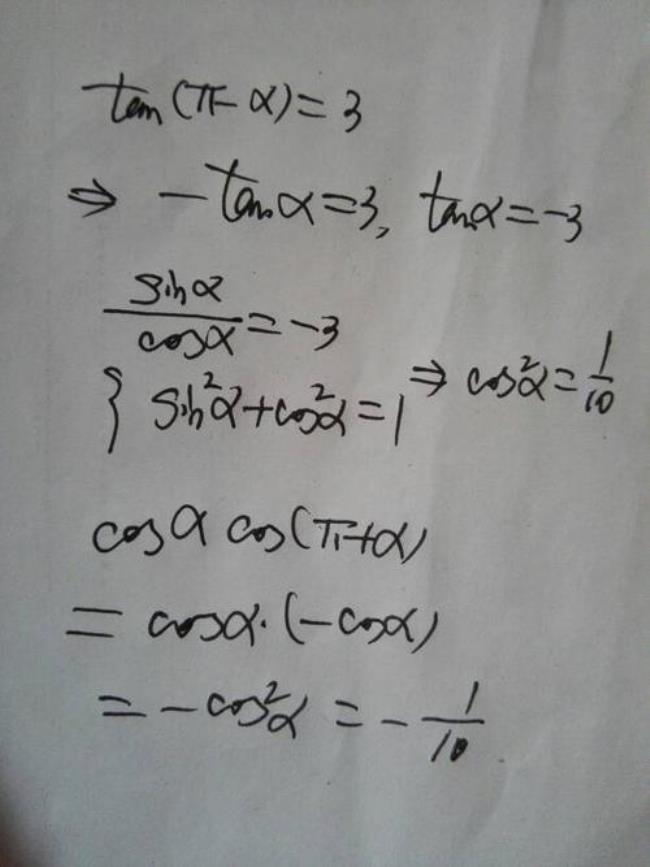 tan(π-α)=3
⇒ -tanα=3, tanα=-3
sinα/cosα=-3
{ sin²α+cos²α=1 ⇒ cos²α=1/10
cosα cos(π+α)
= cosα·(-cosα)
= -cos²α = -1/10